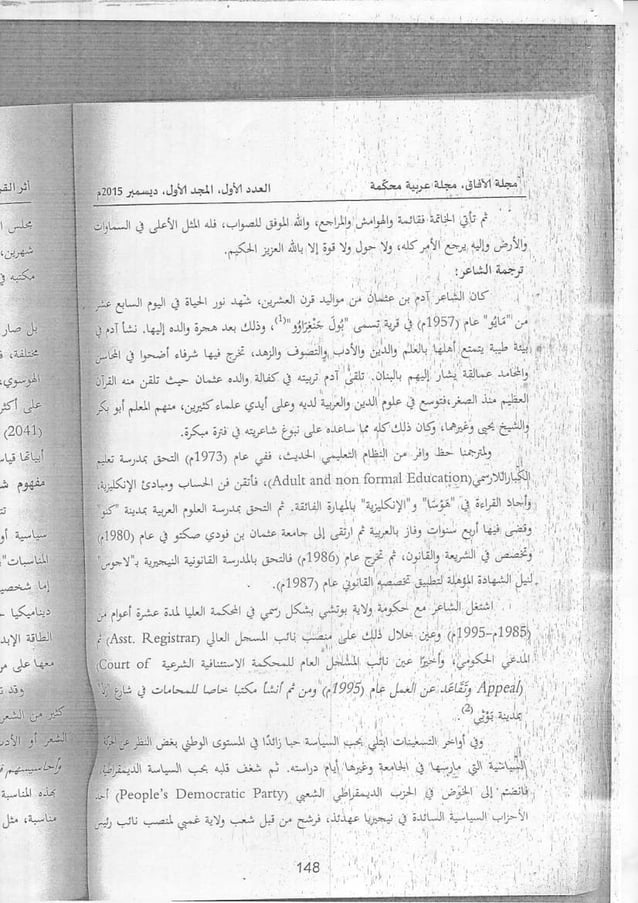 مجلة الآفاق، مجلة عربية محكّمة العدد الأول، المجد الأول، ديسمبر 2015م
ثم تأتي الخاتمة فقائمة والهوامش والمراجع، والله الموفق للصواب، فله المثل الأعلى في السماوات
والأرض وإليه يرجع الأمر كله، ولا حول ولا قوة إلا بالله العزيز الحكيم.
ترجمة الشاعر:
كان الشاعر آدم بن عثمان من مواليد قرن العشرين، شهد نور الحياة في اليوم السابع عشر
من "مَايُو" عام (1957م) في قرية تسمى "بُولَ جَنْغِرَاوُو"(1)، وذلك بعد هجرة والده إليها. نشأ آدم في
بيئة طيبة يتمتع أهلها بالعلم والدين والأدب والتصوف والزهد، تخرج فيها شرفاء أضحوا في المحاسن
والمحامد عمالقة يشار إليهم بالبنان. تلقى آدم تربيته في كفالة والده عثمان حيث تلقن منه القرآن
العظيم منذ الصغر، فتوسع في علوم الدين والعربية لديه وعلى أيدي علماء كثيرين، منهم المعلم أبو بكر
والشيخ يحيى وغيرهما، وكان ذلك كله مما ساعده على نبوغ شاعريته في فترة مبكرة.
ولمترجمنا حظ وافر من النظام التعليمي الحديث، ففي عام (1973م) التحق بمدرسة تعليم
الكبار اللارسمي(Adult and non formal Education)، فأتقن فن الحساب ومبادئ الإنكليزية،
وأجاد القراءة في "هَوْسَا" و"الإنكليزية" بالمهارة الفائقة. ثم التحق بمدرسة العلوم العربية بمدينة "كنو"
وقضى فيها أربع سنوات وفاز بالعربية ثم ارتقى إلى جامعة عثمان بن فودي صكتو في عام (1980م)
وتخصص في الشريعة والقانون، ثم تخرج عام (1986م) فالتحق بالمدرسة القانونية النيجيرية بـ"لاجوس"
لنيل الشهادة المؤهلة لتطبيق تخصصه القانوني عام (1987م).
اشتغل الشاعر مع حكومة ولاية بوتشي بشكل رسمي في المحكمة العليا لمدة عشرة أعوام من
(1985م-1995م) وعين خلال ذلك على منصب نائب المسجل العالي (Asst. Registrar) ثم
المدعي الحكومي، وأخيرًا عين نائب المسجل العام للمحكمة الاستئنافية الشرعية (Court of
Appeal) وتَقَاعَد عن العمل عام (1995م) ومن ثم أنشأ مكتبا خاصا للمحامات في شارع
بمدينة بَوْثِي(2).
وفي أواخر التسعينات ابتلي بحب السياسة حبا زائدًا في المستوى الوطني بغض النظر عن
السياسية التي مارسها في الجامعة وغيرها أيام دراسته. ثم شغف قلبه بحب السياسة الديمقراطية،
فانضم إلى الخوض في الحزب الديمقراطي الشعبي (People's Democratic Party) أحد
الأحزاب السياسية السائدة في نيجيريا عهدئذ، فرشح من قبل شعب ولاية غمبي لمنصب نائب رئيس
148
مجلس
شهرين،
مكتبه
بل صار
مختلفة،
الهوسوي،
على أكثر
(2041)
مفهوم
سياسية
المناسبات"
ديناميكيا
معها على
كثير من الشعر
الشعر أو
بهذه المناسبة
مناسبة، مثل